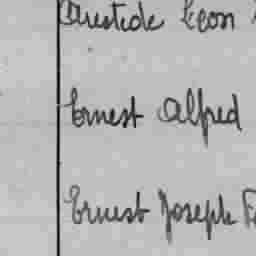 Aristide Léon
Ernest Alfred
Ernest Joseph